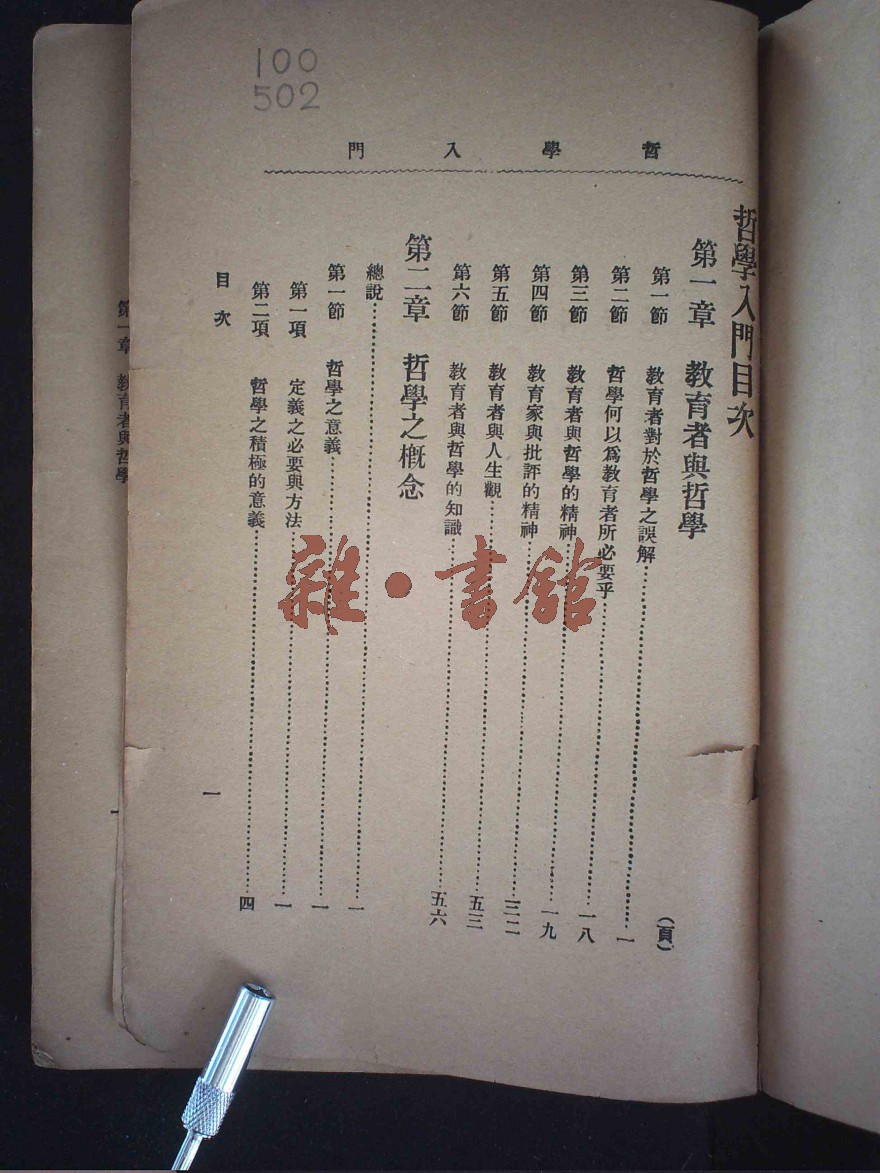 100
502
哲學入門
哲學入門目次
(頁)
第一章 教育者與哲學
第一節 教育者對於哲學之誤解……一
第二節 哲學何以爲教育者所必要乎……一八
第三節 教育者與哲學的精神……一九
第四節 教育家與批評的精神……三二
第五節 教育者與人生觀……五三
第六節 教育者與哲學的知識……五六
第二章 哲學之槪念
總說……一
第一節 哲學之意義……一
第一項 定義之必要與方法……一
第二項 哲學之積極的意義……四
目次
一
第一章 教育者與哲學
雜·書館